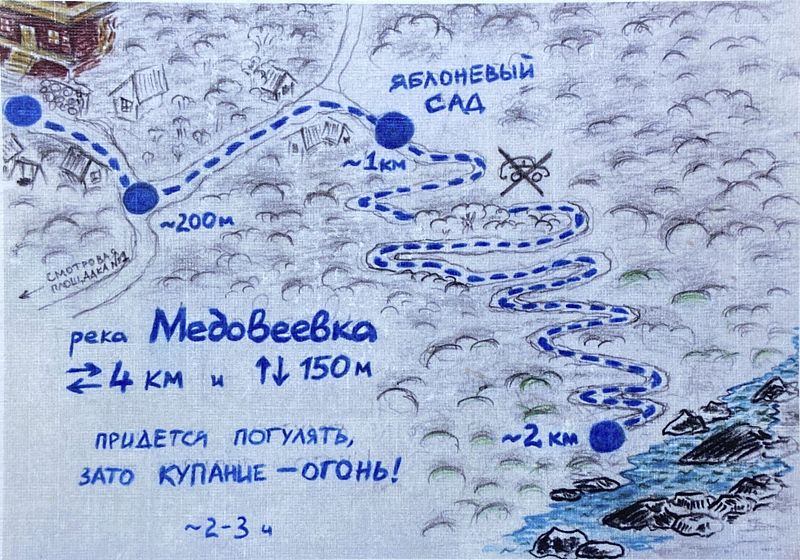 ЯБЛОНЕВЫЙ
САД
~1 км
~200м
СМОТРОВАЯ
ПЛОЩАДКА №1
река Медовеевка
⇄ 4 км и ↑↓ 150 м
ПРИДЕТСЯ ПОГУЛЯТЬ,
ЗАТО КУПАНИЕ – ОГОНЬ!
~2 км
~2-3 ч